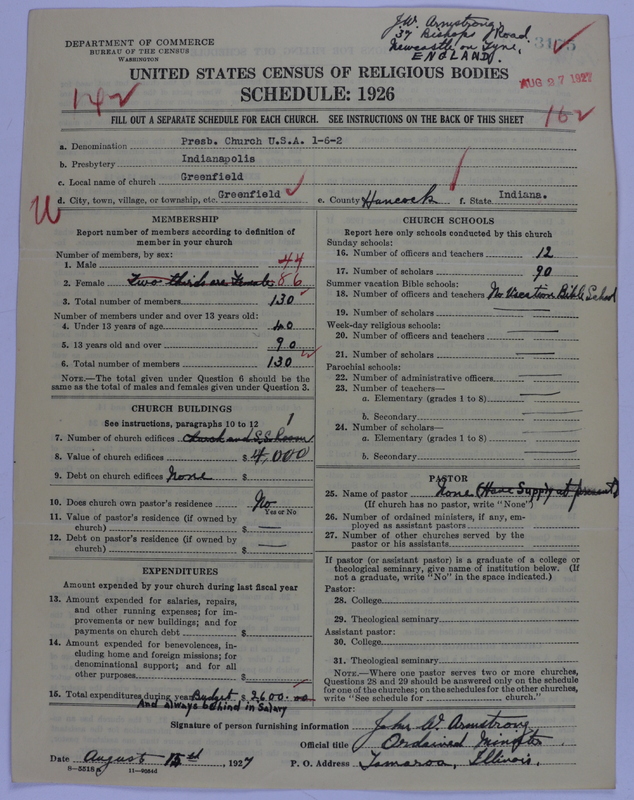 J.W. Armstrong,
37 Bishops Road.
Newcastle on Tyne,
ENGLAND.
DEPARTMENT OF COMMERCE
BUREAU OF THE CENSUS
WASHINGTON
AUG 27 1927
UNITED STATES CENSUS OF RELIGIOUS BODIES
SCHEDULE: 1926
FILL OUT A SEPARATE SCHEDULE FOR EACH CHURCH. SEE INSTRUCTIONS ON THE BACK OF THIS SHEET
a. Denomination Presb. Church U.S.A. 1-6-2
b. Presbytery Indianapolis
c. Local name of church Greenfield
d. City, town, village, or township, etc. Greenfield e. County Hancock f. State Indiana.
MEMBERSHIP
Report number of members according to definition of
member in your church
Number of members, by sex:
1. Male 44
2. Female Two thirds are Female 86
3. Total number of members 130
Number of members under and over 13 years old:
4. Under 13 years of age 40
5. 13 years old and over 90
6. Total number of members 130
NOTE.—The total given under Question 6 should be the
same as the total of males and females given under Question 3.
CHURCH BUILDINGS
See instructions, paragraphs 10 to 12 1
7. Number of church edifices Church and S.S. Room
8. Value of church edifices $ 4,000
9. Debt on church edifices None $
10. Does church own pastor's residence No
Yes or No
11. Value of pastor's residence (if owned by
church) $ —
12. Debt on pastor's residence (if owned by
church) $ —
EXPENDITURES
Amount expended by your church during last fiscal year
13. Amount expended for salaries, repairs,
and other running expenses; for im-
provements or new buildings; and for
payments on church debt $
14. Amount expended for benevolences, in-
cluding home and foreign missions; for
denominational support; and for all
other purposes $
15. Total expenditures during year Budget $ 2600.00
And always behind in Salary
CHURCH SCHOOLS
Report here only schools conducted by this church
Sunday schools:
16. Number of officers and teachers 12
17. Number of scholars 90
Summer vacation Bible schools:
18. Number of officers and teachers No Vacation Bible School
19. Number of scholars —
Week-day religious schools:
20. Number of officers and teachers —
21. Number of scholars —
Parochial schools:
22. Number of administrative officers —
23. Number of teachers—
a. Elementary (grades 1 to 8) —
b. Secondary —
24. Number of scholars—
a. Elementary (grades 1 to 8) —
b. Secondary —
PASTOR
25. Name of pastor None (Have Supply at present)
(If church has no pastor, write "None")
26. Number of ordained ministers, if any, em-
ployed as assistant pastors
27. Number of other churches served by the
pastor or his assistants
If pastor (or assistant pastor) is a graduate of a college or
theological seminary, give name of institution below. (If
not a graduate, write "No" in the space indicated.)
Pastor:
28. College
29. Theological seminary
Assistant pastor:
30. College
31. Theological seminary
NOTE.—Where one pastor serves two or more churches,
Questions 28 and 29 should be answered only on the schedule
for one of the churches; on the schedules for the other churches,
write "See schedule for church."
Signature of person furnishing information John W. Armstrong
Official title Ordained Minister
Date August 15, 1927 P. O. Address Tamaroa, Illinois.